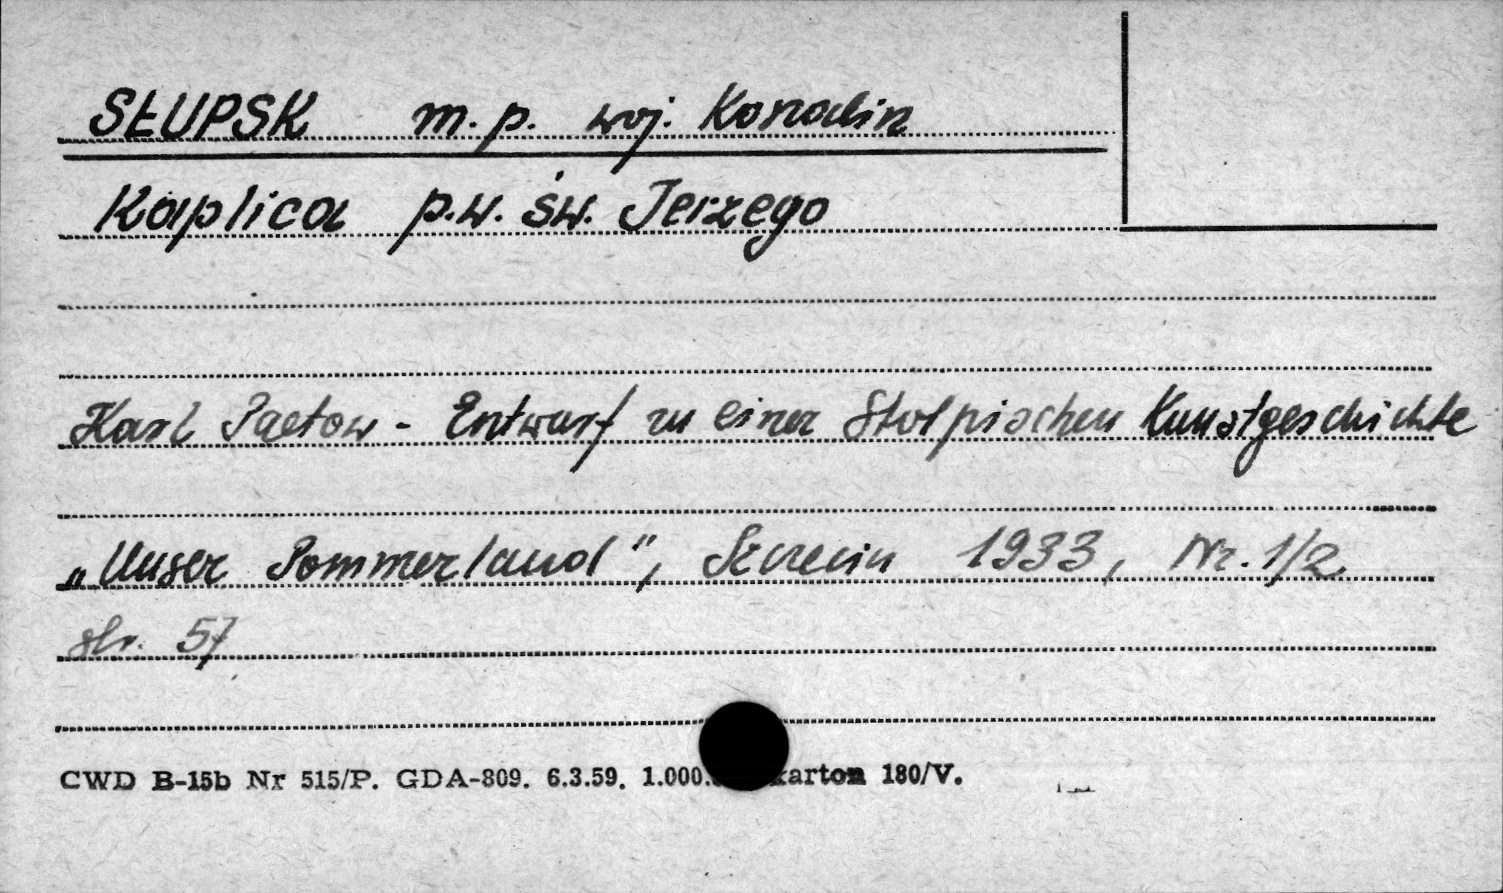 SŁUPSK m.p. woj. Koszalin
Kaplica p.w. św. Jerzego
Karl Paetow - Entwurf zu einer Stolpischen Kunstgeschichte
„Unser Pommerland", Szczecin 1933, Nr. 1/2
str. 57
CWD B-15b Nr 515/P. GDA-809. 6.3.59. 1.000. karton 180/V.